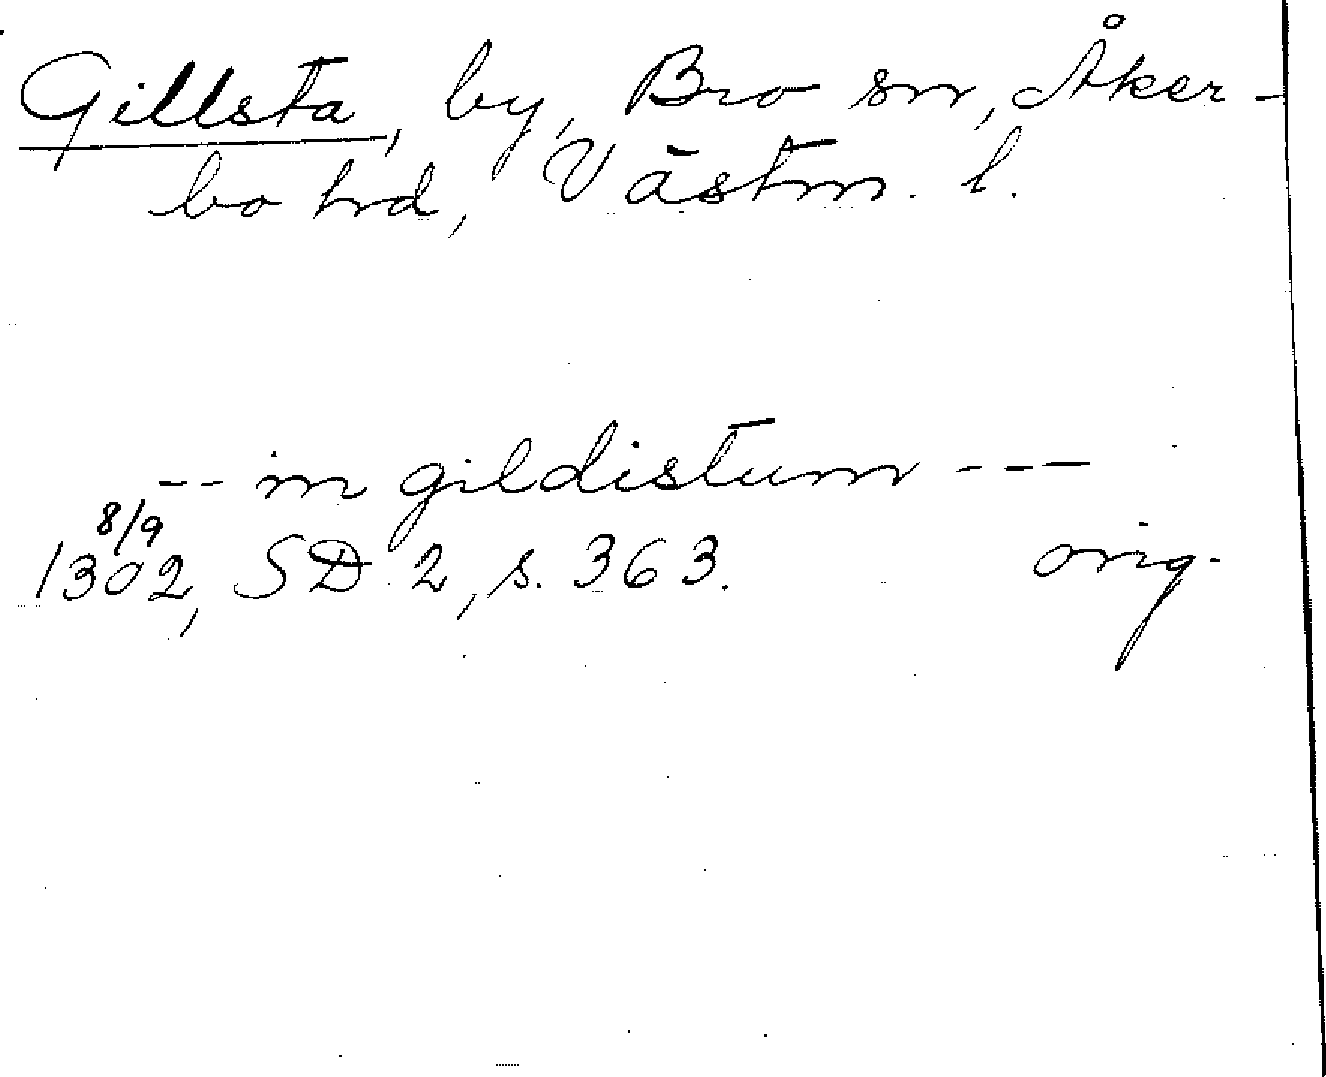 Gillsta, by, Bro sn, Åker-
bo hrd, Västm. l.
-- in gildistum ---
8/9
1302, SD 2, s. 363. orig.